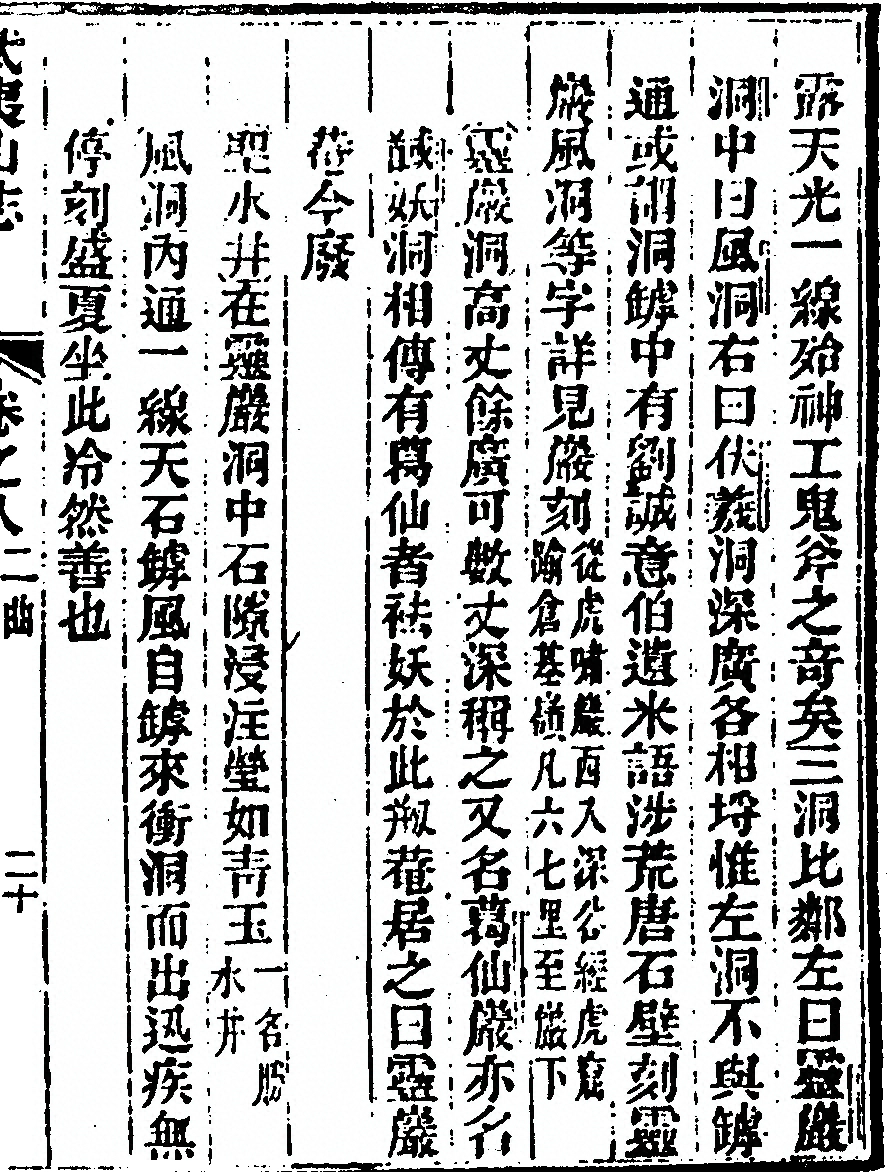 露天光一線殆神工鬼斧之奇矣三洞比鄰左曰靈巖
洞中曰風洞右曰伏羲洞深廣各相埒惟左洞不與罅
通或謂洞罅中有劉誠意伯遺米語涉荒唐石壁刻靈
巖風洞等字詳見巖刻從虎嘯巖西入深谷經虎窟
踰倉基嶺凡六七里至巖下
靈巖洞高丈餘廣可數丈深稱之又名葛仙巖亦名
馘妖洞相傳有葛仙者祛妖於此刱菴居之曰靈巖
菴今廢
聖水井在靈巖洞中石隙浸注瑩如青玉一名勝
水井
風洞內通一線天石罅風自罅來衝洞而出迅疾無
停刻盛夏坐此冷然善也
武夷山志
卷之八 二曲
二十